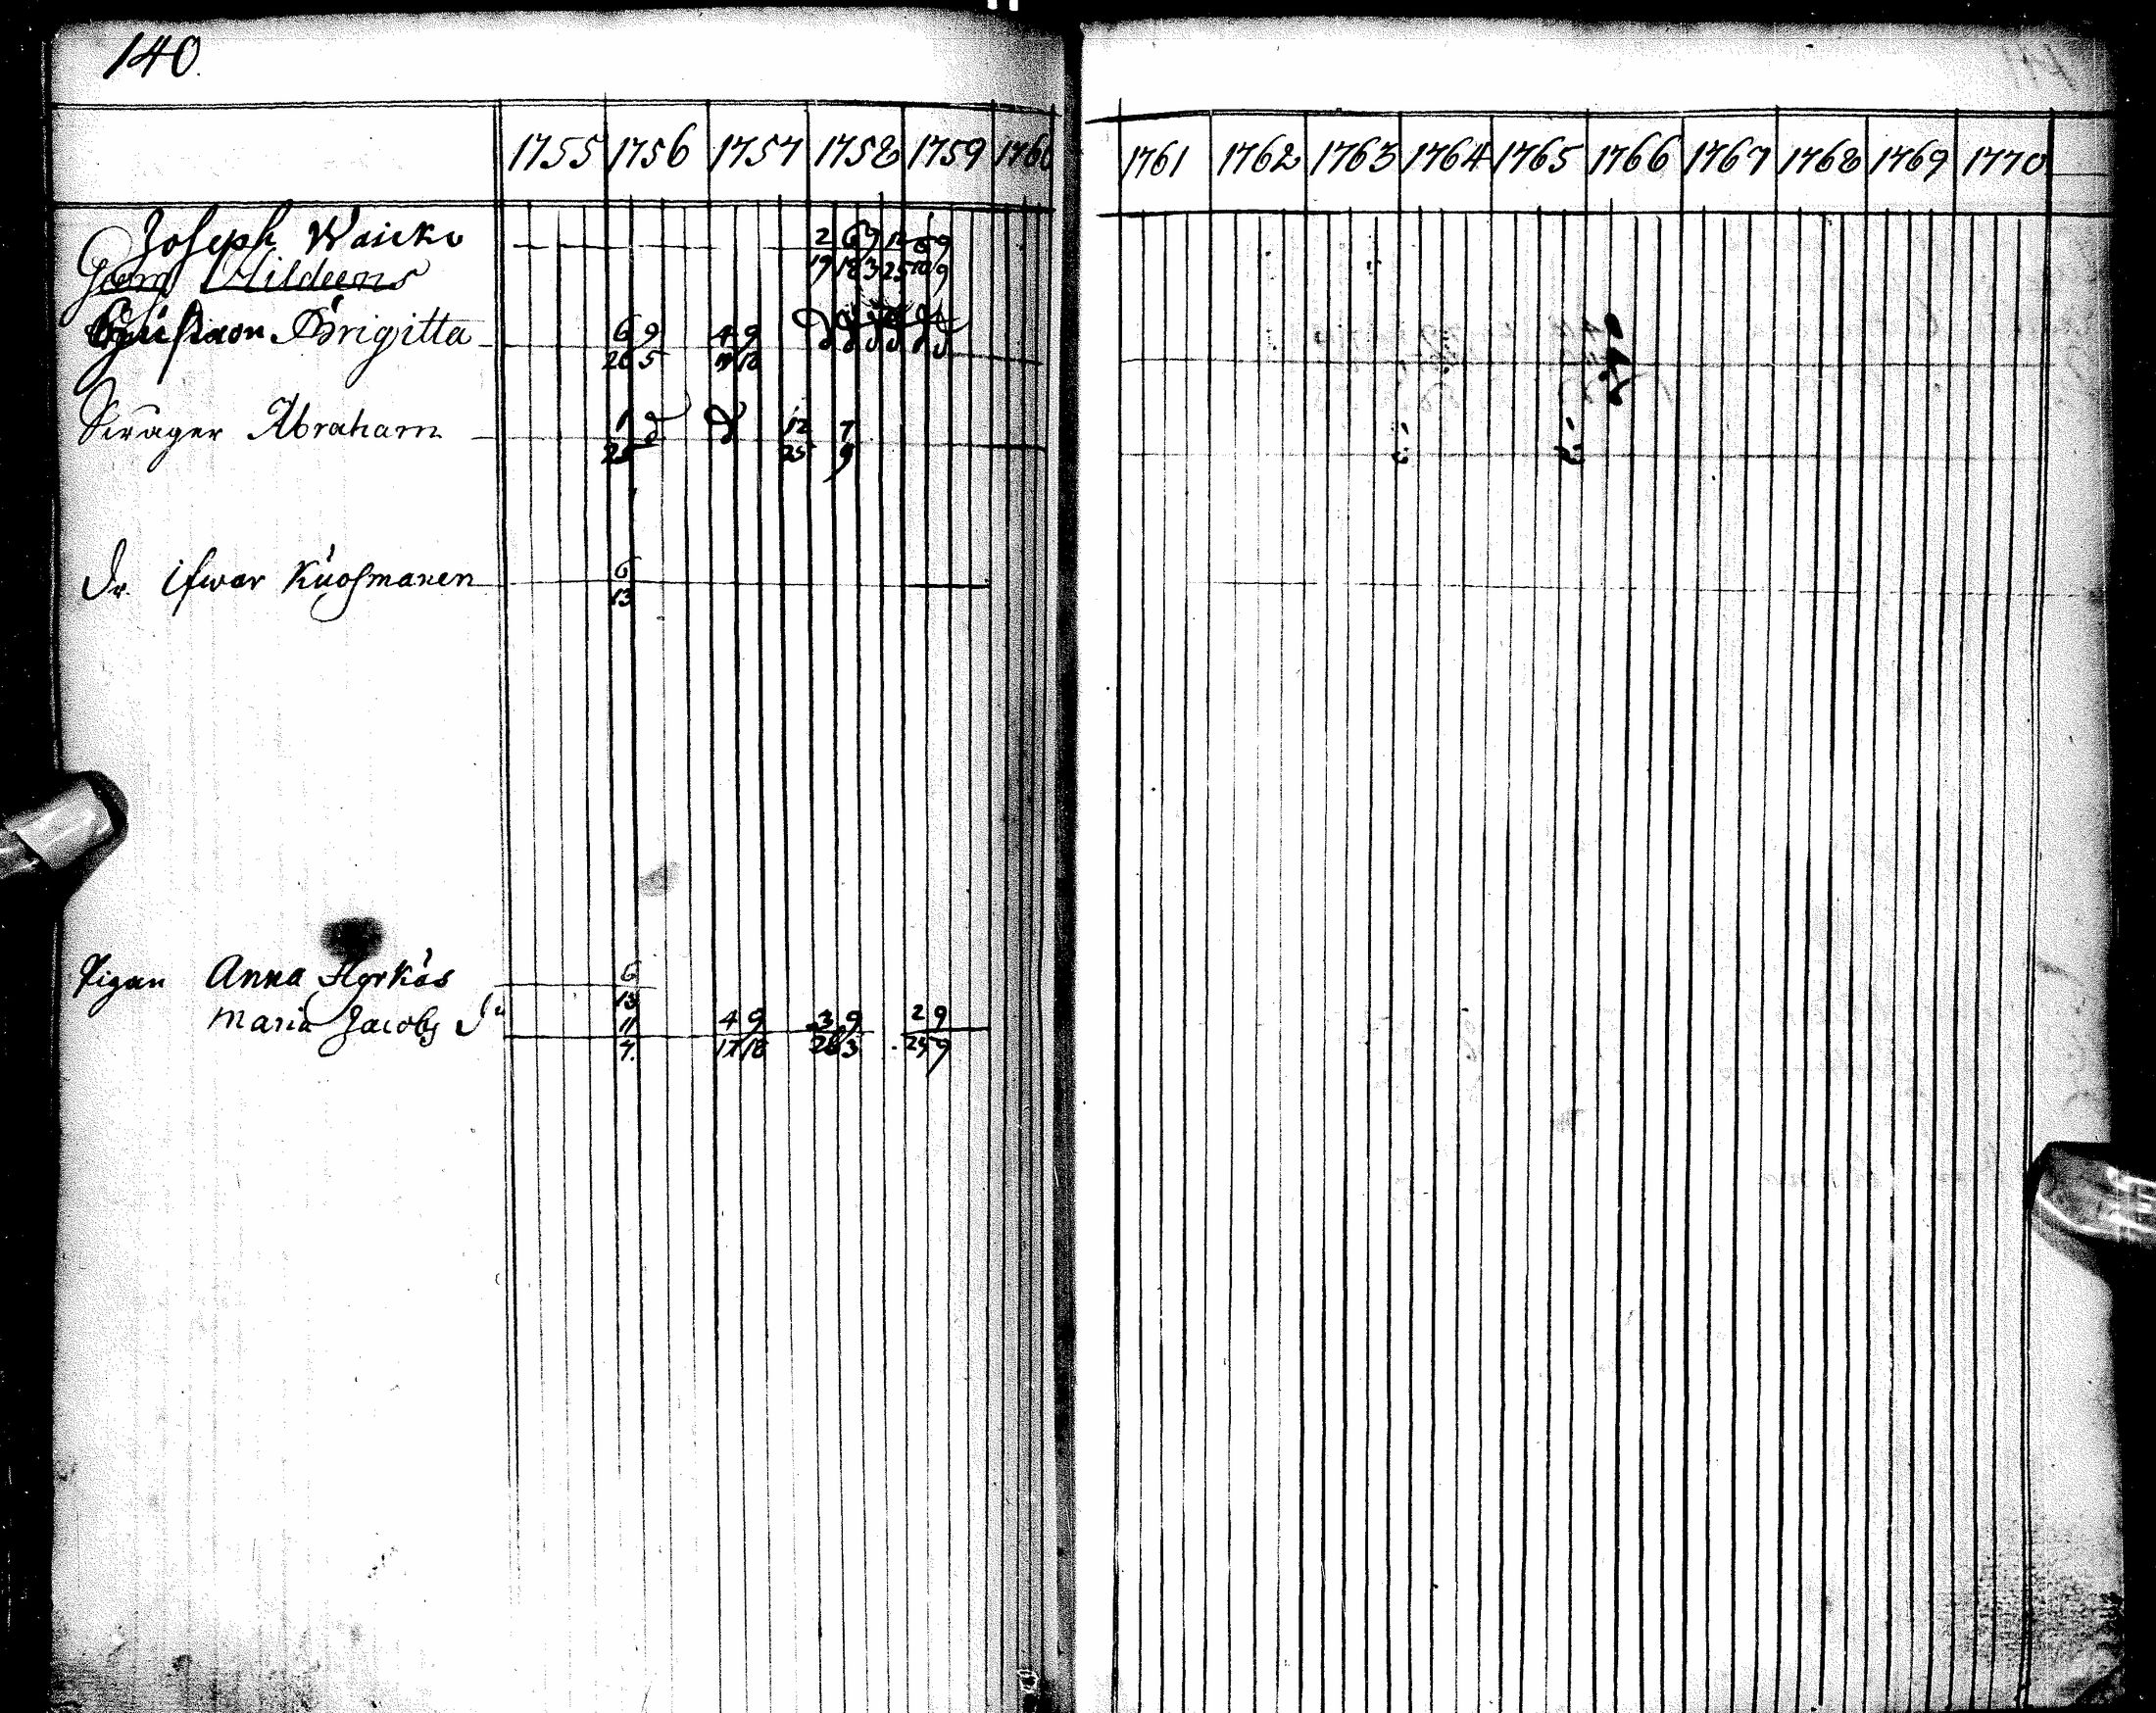 140.
1755 1756 1757 1758 1759 1760 1761 1762 1763 1764 1765 1766 1767 1768 1769 1770
Joseph 2 6 9 12 6 9
19 18 3 25 10 9
Brigitta 6 9 4 9
26 5 19 18
Abraham 1 d d 12 7
25 25 9
Dr. Ifwar Kuosmanen 6
13
Pigan Anna 6
13
Maria Jacobs dr 11 4 9 3 9 2 9
7. 17 18 26 3 25 9